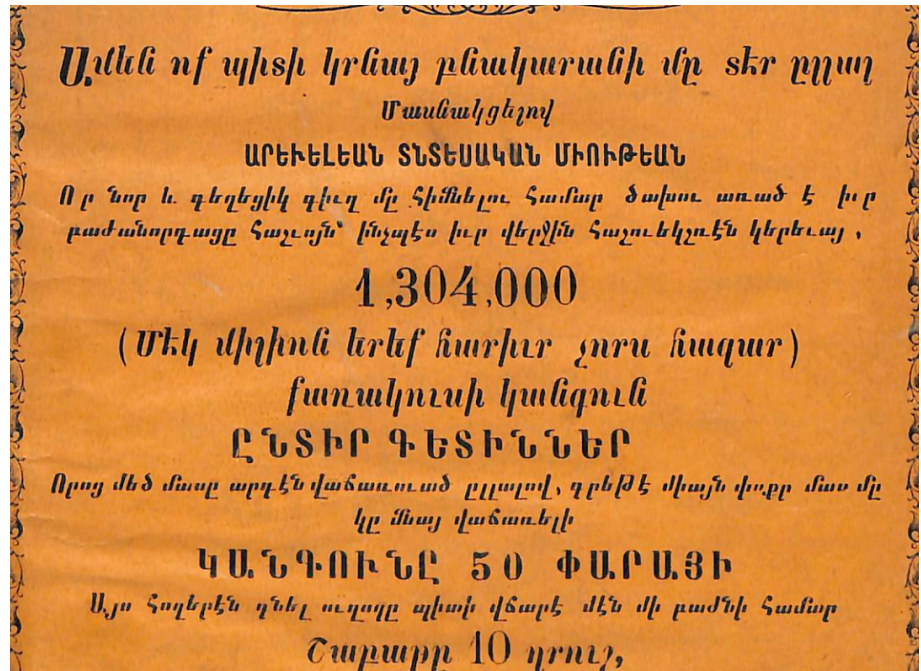 Ամեն ոք պիտի կրնայ բնակարանի մը տէր ըլլալ
Մասնակցելով
ԱՐԵՒԵԼԵԱՆ ՏՆՏԵՍԱԿԱՆ ՄԻՈՒԹԵԱՆ
Որ նոր և գեղեցիկ գիւղ մը հիմնելու համար ծախու առած է իւր
բաժանորդացը հաշւոյն՝ ինչպէս իւր վերջին հաշուեկշռէն կերեւայ,
1,304,000
(Մէկ միլիոն երեք հարիւր չորս հազար)
քառակուսի կանգուն
ԸՆՏԻՐ ԳԵՏԻՆՆԵՐ
Որոց մեծ մասը արդէն վաճառուած ըլլալով, գրեթէ միայն փոքր մաս մը
կը մնայ վաճառելի
ԿԱՆԳՈՒՆԸ 50 ՓԱՐԱՅԻ
Այս հողերէն գնել ուզողը պիտի վճարէ մէն մի բաժնի համար
Շաբաթը 10 ղրուշ,